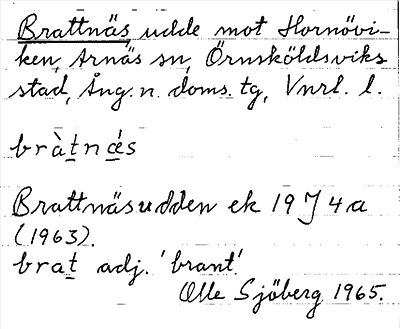 Brattnäs, udde mot Hornövi-
ken, Arnäs sn, Örnsköldsviks
stad, Ång. n. doms. tg, Vnrl. l.
bràt̲nǽ̲s
Brattnäsudden ek 19 J 4a
(1963).
brat̲ adj. 'brant'.
Olle Sjöberg 1965.